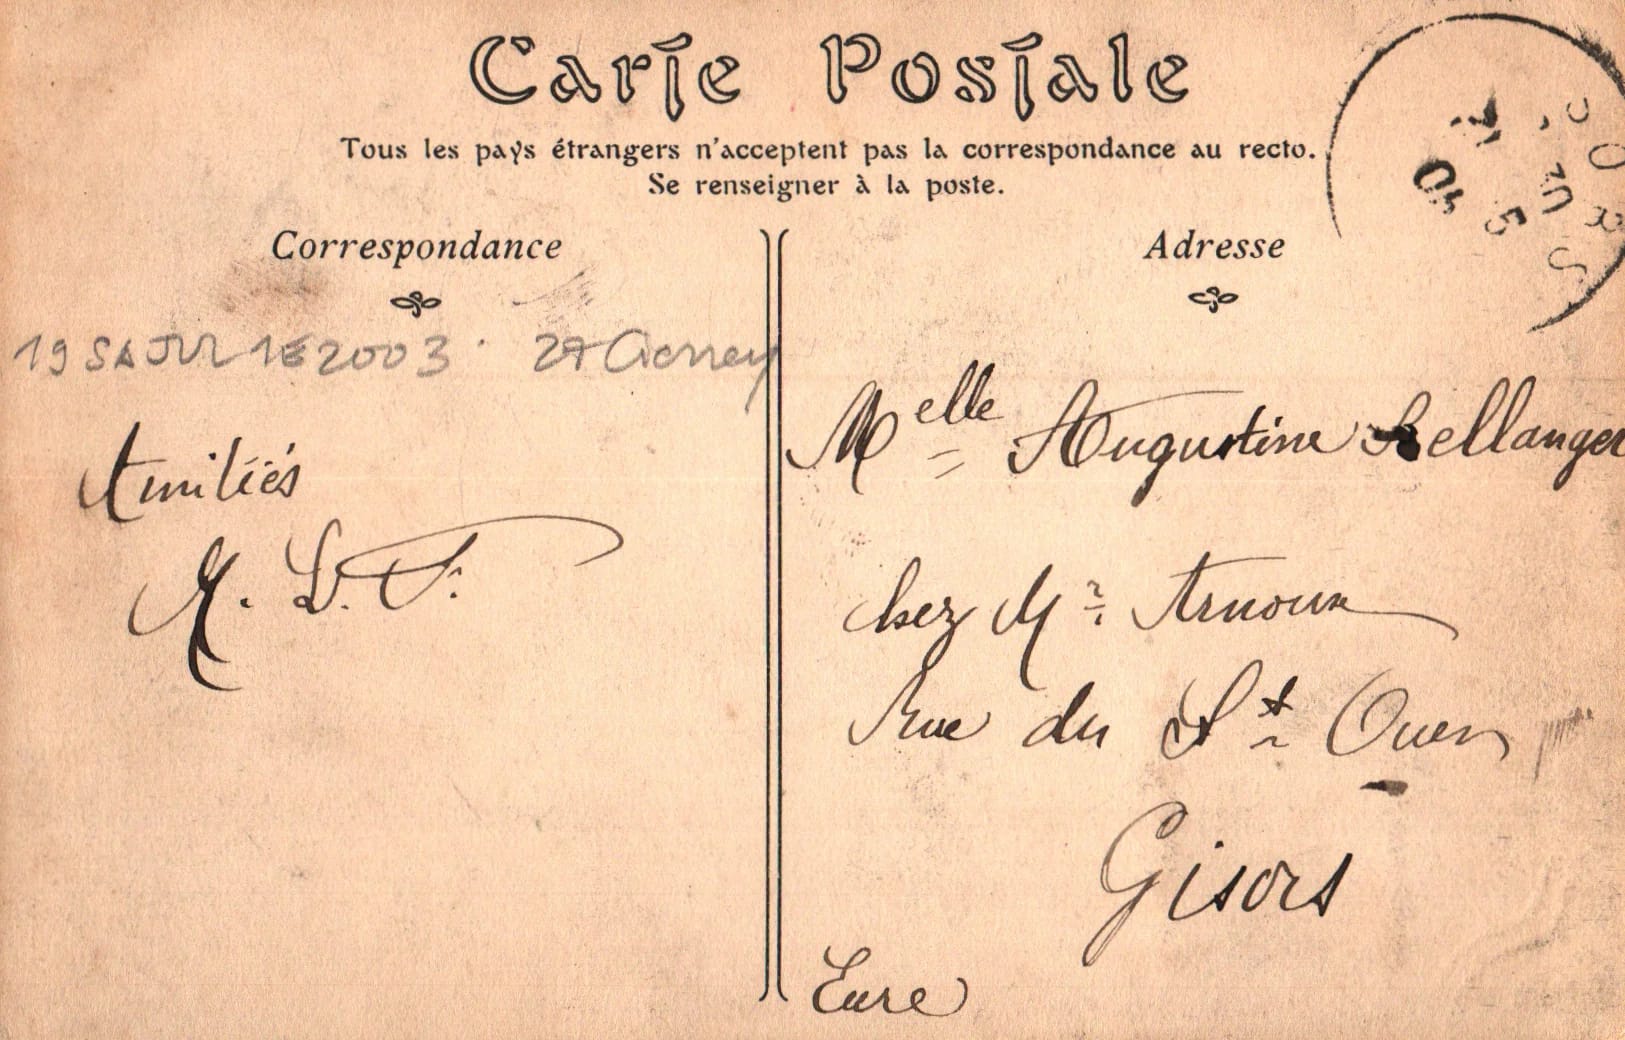 Carte Postale
Tous les pays étrangers n'acceptent pas la correspondance au recto.
Se renseigner à la poste.
Correspondance
Adresse
19 SA JUL 1E 2003. 27
Amitiés
M. L. F.
Melle Augustine Bellanger
chez Mr Arnoux
Rue du St Ouen
Gisors
Eure